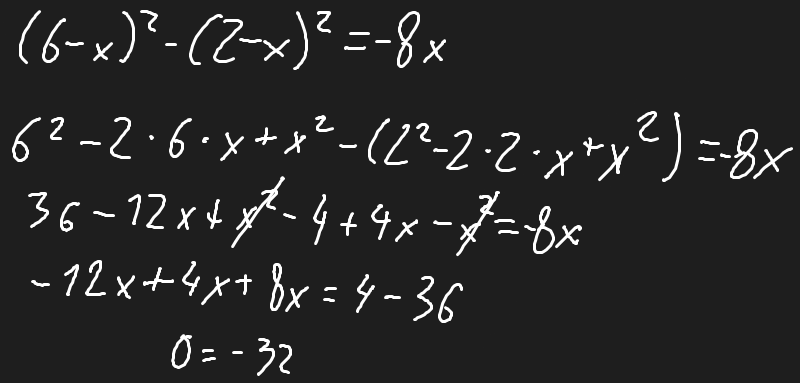 (6-x)² - (2-x)² = -8x
6² - 2·6·x + x² - (2² - 2·2·x + x²) = -8x
36 - 12x + x² - 4 + 4x - x² = -8x
-12x + 4x + 8x = 4 - 36
0 = -32